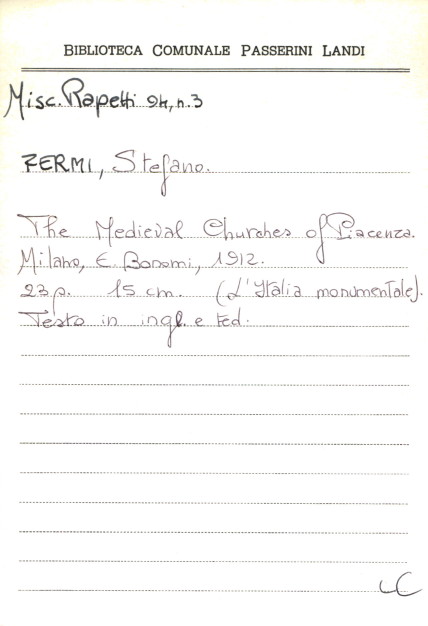 BIBLIOTECA COMUNALE PASSERINI LANDI
Misc. Rapetti 94, n. 3
FERMI, Stefano.
The Medieval Churches of Piacenza.
Milano, E. Bonomi, 1912.
23 p. 15 cm. (L'Italia monumentale).
Testo in ingl. e ted.
LC